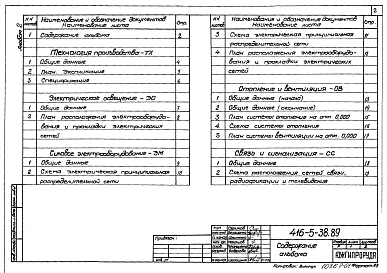 2
Альбом
№№ листов
Наименование и обозначение документов
Наименование листа
Стр.
1 Содержание альбома 2
Технология производства-ТХ
1 Общие данные 4
2 План. Экспликация 5
3 Спецификация 6
Электрическое освещение - ЭО
1 Общие данные 7
2 План расположения электрооборудо-
вания и прокладки электрических 8
сетей
Силовое электрооборудование-ЭМ
1 Общие данные 9
2 Схема электрическая принципиальная 10
распределительной сети
Наименование и обозначение документов
Наименование листа
Стр.
3 Схема электрическая принципиальная
распределительной сети
4 План расположения электрооборудо-
вания и прокладки электрических
сетей
Отопление и вентиляция - ОВ
1 Общие данные (начало)
2 Общие данные (окончание)
3 План системы отопления на отм. 0,000
4 Схема системы отопления
5 План системы вентиляции на отм. 0,000
Связь и сигнализация - СС
1 Общие данные
2 Схема расположения сетей связи,
радиофикации и телевидения
Привязан:
416-5-38.89
Содержание
альбома
Копировал:
Формат